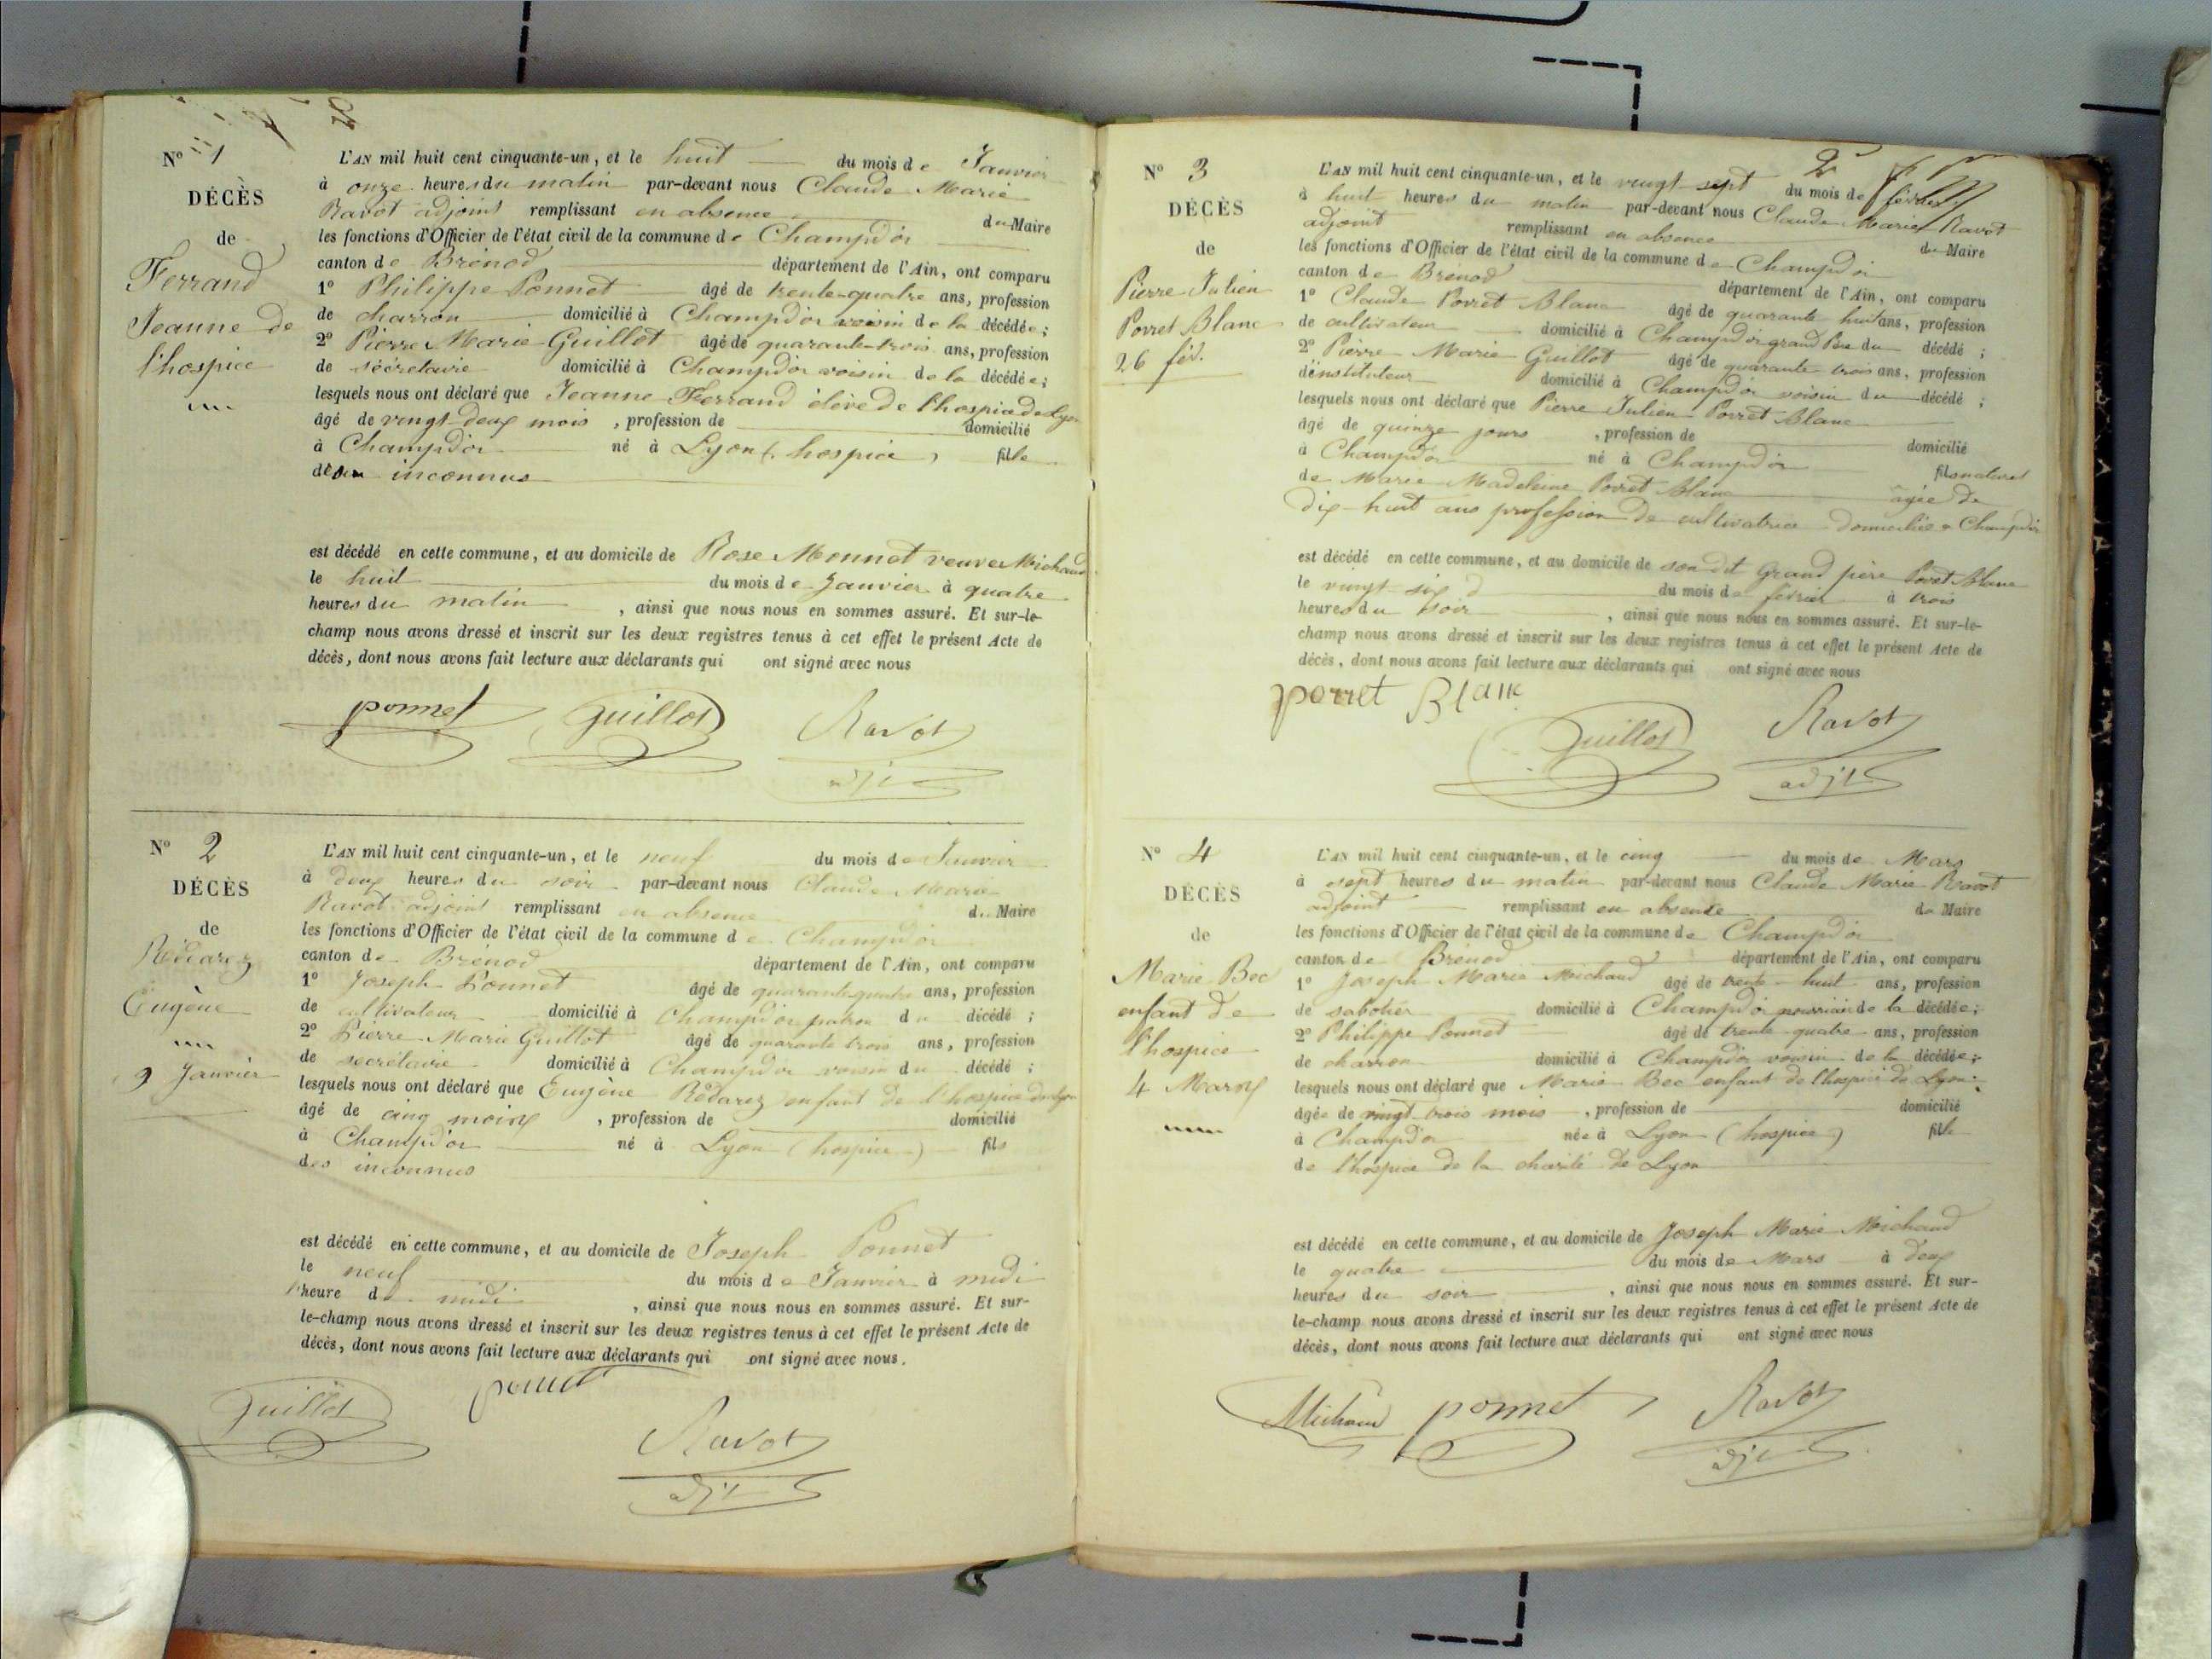 Nº 1
DÉCÈS
de
Ferrand
Jeanne de
l'hospice
L'AN mil huit cent cinquante-un, et le huit du mois de Janvier
à onze heures du matin par-devant nous Claude Marie
Ravot adjoint remplissant en absence du Maire
les fonctions d'Officier de l'état civil de la commune de Champdor
canton de Brénod département de l'Ain, ont comparu
1º Philippe Ponnet âgé de trente-quatre ans, profession
de charron domicilié à Champdor voisin de la décédée;
2º Pierre Marie Guillot âgé de quarante-trois ans, profession
de sécrétaire domicilié à Champdor voisin de la décédée;
lesquels nous ont déclaré que Jeanne Ferrand élève de l'hospice de Lyon
âgé de vingt-deux mois, profession de domicilié
à Champdor né à Lyon (hospice) fille
de inconnus
est décédé en cette commune, et au domicile de Rose Monnet veuve Michaud
le huit du mois de Janvier à quatre
heures du matin, ainsi que nous nous en sommes assuré. Et sur-le-
champ nous avons dressé et inscrit sur les deux registres tenus à cet effet le présent Acte de
décès, dont nous avons fait lecture aux déclarants qui ont signé avec nous
ponnet Guillot Ravot
adjt
Nº 2
DÉCÈS
de
Rédarez
Eugène
9 Janvier
L'AN mil huit cent cinquante-un, et le neuf du mois de Janvier
à deux heures du soir par-devant nous Claude Marie
Ravot adjoint remplissant en absence du Maire
les fonctions d'Officier de l'état civil de la commune de Champdor
canton de Brénod département de l'Ain, ont comparu
1º Joseph Ponnet âgé de quarante-quatre ans, profession
de cultivateur domicilié à Champdor patron du décédé;
2º Pierre Marie Guillot âgé de quarante trois ans, profession
de secrétaire domicilié à Champdor voisin du décédé;
lesquels nous ont déclaré que Eugène Rédarez enfant de l'hospice de Lyon
âgé de cinq mois, profession de domicilié
à Champdor né à Lyon (hospice) fils
des inconnus
est décédé en cette commune, et au domicile de Joseph Ponnet
le neuf du mois de Janvier à midi
heure de midi, ainsi que nous nous en sommes assuré. Et sur-
le-champ nous avons dressé et inscrit sur les deux registres tenus à cet effet le présent Acte de
décès, dont nous avons fait lecture aux déclarants qui ont signé avec nous.
Guillot ponnet
Ravot
adjt
2
Nº 3
DÉCÈS
de
Pierre Julien
Porret Blanc
26 fév.
L'AN mil huit cent cinquante-un, et le vingt-sept du mois de février
à huit heures du matin par-devant nous Claude Marie Ravot
adjoint remplissant en absence du Maire
les fonctions d'Officier de l'état civil de la commune de Champdor
canton de Brénod département de l'Ain, ont comparu
1º Claude Porret Blanc âgé de quarante huit ans, profession
de cultivateur domicilié à Champdor grand Père du décédé;
2º Pierre Marie Guillot âgé de quarante trois ans, profession
d'instituteur domicilié à Champdor voisin du décédé;
lesquels nous ont déclaré que Pierre Julien Porret Blanc
âgé de quinze jours, profession de domicilié
à Champdor né à Champdor fils naturel
de Marie Madeleine Porret Blanc âgée de
dix-huit ans profession de cultivatrice domiciliée à Champdor
est décédé en cette commune, et au domicile de son dit Grand père Porret Blanc
le vingt six du mois de février à trois
heures du soir, ainsi que nous nous en sommes assuré. Et sur-le-
champ nous avons dressé et inscrit sur les deux registres tenus à cet effet le présent Acte de
décès, dont nous avons fait lecture aux déclarants qui ont signé avec nous
porret Blanc
Guillot Ravot
adjt
Nº 4
DÉCÈS
de
Marie Bec
enfant de
l'hospice
4 Mars
L'AN mil huit cent cinquante-un, et le cinq du mois de Mars
à sept heures du matin par-devant nous Claude Marie Ravot
adjoint remplissant en absence du Maire
les fonctions d'Officier de l'état civil de la commune de Champdor
canton de Brénod département de l'Ain, ont comparu
1º Joseph Marie Michaud âgé de trente-huit ans, profession
de sabotier domicilié à Champdor nourricier de la décédée;
2º Philippe Ponnet âgé de trente-quatre ans, profession
de charron domicilié à Champdor voisin de la décédée;
lesquels nous ont déclaré que Marie Bec enfant de l'hospice de Lyon
âgée de vingt-trois mois, profession de domicilié
à Champdor née à Lyon (hospice) fille
de l'hospice de la charité de Lyon
est décédé en cette commune, et au domicile de Joseph Marie Michaud
le quatre du mois de Mars à deux
heures du soir, ainsi que nous nous en sommes assuré. Et sur-
le-champ nous avons dressé et inscrit sur les deux registres tenus à cet effet le présent Acte de
décès, dont nous avons fait lecture aux déclarants qui ont signé avec nous
Michaud ponnet Ravot
adjt